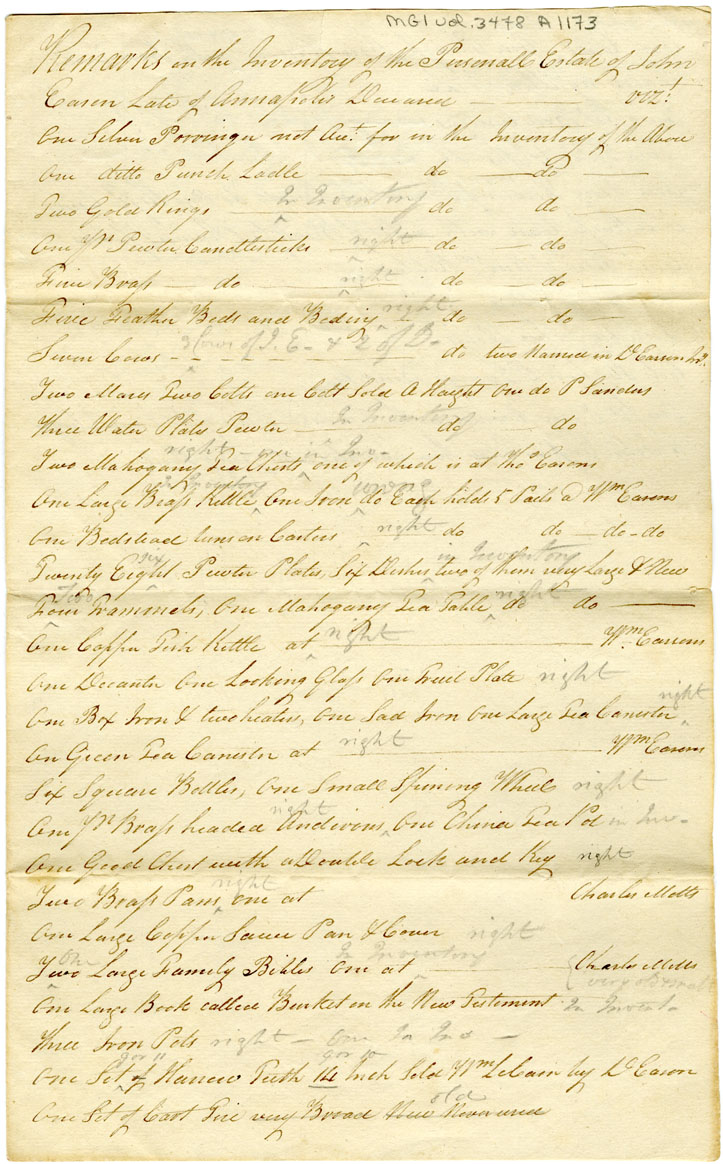 MG1 Vol. 3478 A1173
Remarks on the Inventory of the Personall Estate of John
Easson Late of Annapolis Deceased — — vizt.
One Silver Porringer not Acct. for in the Inventory of the Above
One ditto Punch Ladle — do — do —
Two Gold Rings — In Inventory do do —
One pr Pewter Candlesticks — right — do — do —
Five Brass — do — right do — do —
Five Feather Beds and Beding right — do — do —
Seven Cows — 3 Cows of J. E- & 2 of D- do two Named in
Two Mares Two Colts one Colt Sold A Haight one do P Sanders
Three Water Plates Pewter — In Inventory do do
right — one in Inv-
Two Mahogany Tea Chests one of which is at Thos Easons
in Inventory wrong
One Large Brass Kettle, One Iron do Each holds 5 Pails a Wm Easons
One Bedstead runs on Casters right do do — do - do
six in Inventory
Twenty Eight Pewter Plates, Six Dishes two of them very Large & New
Two right
Four Trammels, One Mahogany Tea Table do do —
One Copper Fish Kettle at right — Wm. Easons
One Decanter One Looking Glass One Plate right
One Box Iron & two heaters, One Sad Iron One Large Tea Canester right
On Green Tea Canester at right — Wm Easons
Six Square Bottles, One Small Spining Wheel right
right
One pr Brass headed Andirons, One China Tea Pot in Inv-
One Good Chest with a Double Lock and Key right
right
Two Brass Pans, one at Charles Motts
One Large Copper Sauce Pan & Cover right
One In Inventory
Two Large Family Bibles One at — Charles Motts
very old & small
One Large Book called Burket on the New Testement In Invent-
Three Iron Pots right — One In Inv —
9 or 11 9 or 10
One Set of Harrow Teeth 14 Inch Sold Wm LeCain by D Eason
old
One Set of Cart Tire very Broad New Never used